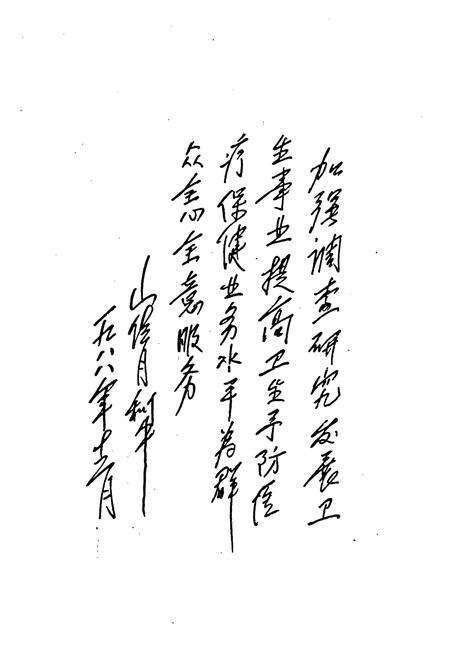 加强调查研究发展卫
生事业提高卫生予防医
疗保健业务水平为群
众全心全意服务
山
一九八八年十二月